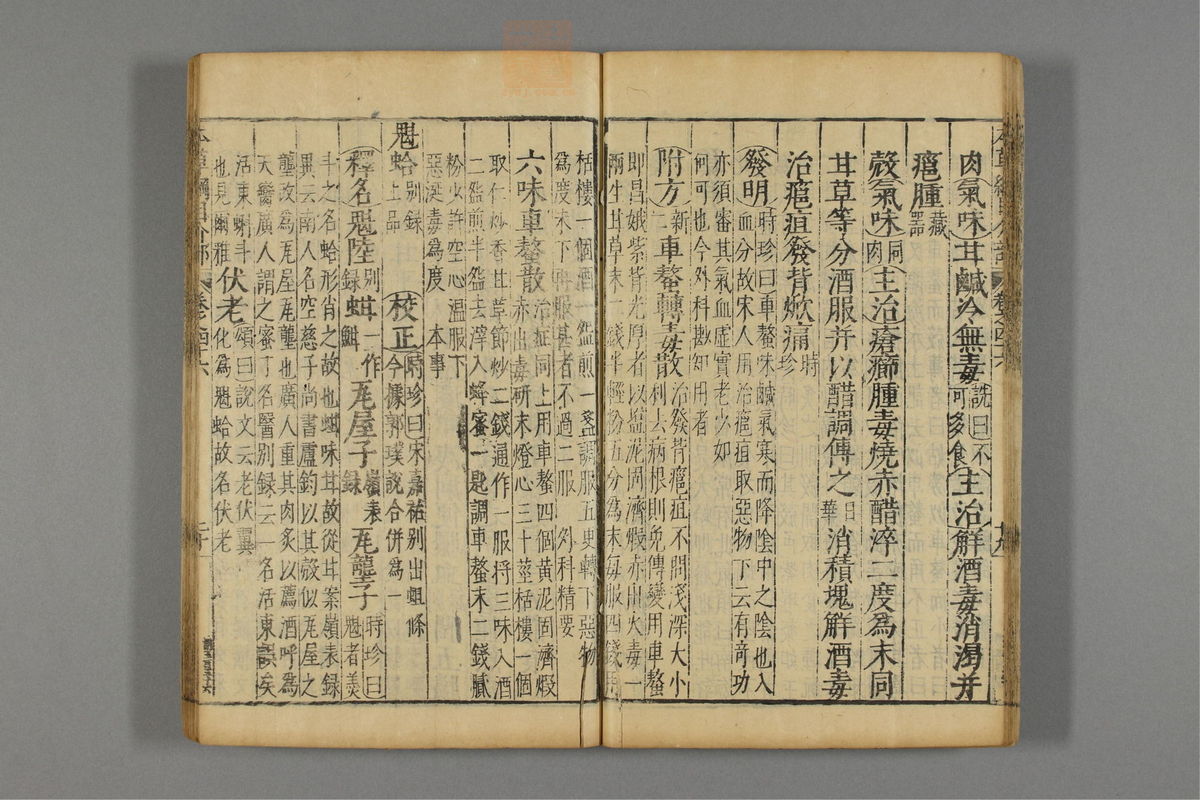 肉氣味甘鹹冷無毒說曰不可多食主治解酒毒消渴并
癰腫藏器
殼氣味同肉主治瘡癤腫毒燒赤醋淬二度為末同
甘草等分酒服并以醋調傅之日華消積塊解酒毒
治癰疽發背焮痛時珍
發明時珍曰車螯味鹹氣寒而降陰中之陰也入
血分故宋人用治癰疽取惡物下云有奇功
亦須審其氣血虛實老少如
何可也今外科尠知用者
附方新二車螯轉毒散治發背癰疽不問淺深大小
利去病根則免傳變用車螯
即昌娥紫背光厚者以塩泥固濟煅赤出火毒一
兩生甘草末一錢半輕粉五分為末每服四錢用
栝樓一個酒一盌煎一盞調服五更轉下惡物
為度未下再服甚者不過二服外科精要
六味車螯散治症同上用車螯四個黃泥固濟煅
赤出毒研末燈心三十莖栝樓一個
取仁炒香甘草節炒二錢通作一服将三味入酒
二盌煎半盌去滓入蜂蜜一匙調車螯末二錢膩
粉少許空心溫服下
惡涎毒為度本事
魁蛤別録上品校正時珍曰宋嘉祐別出蚶條
今據郭璞說合併為一
釋名魁陸別録蚶一作魽瓦屋子嶺表録瓦壟子時珍曰魁者羹
斗之名蛤形肖之故也蚶味甘故從甘案嶺表録
異云南人名空慈子尚書盧鈞以其殼似瓦屋之
壟改為瓦屋瓦壟也廣人重其肉炙以薦酒呼為
天臠廣人謂之蜜丁名醫別録云一名活東誤矣
活東蝌斗也見爾雅伏老頌曰說文云老伏翼化為魁蛤故名伏老
本草綱目介部卷四六